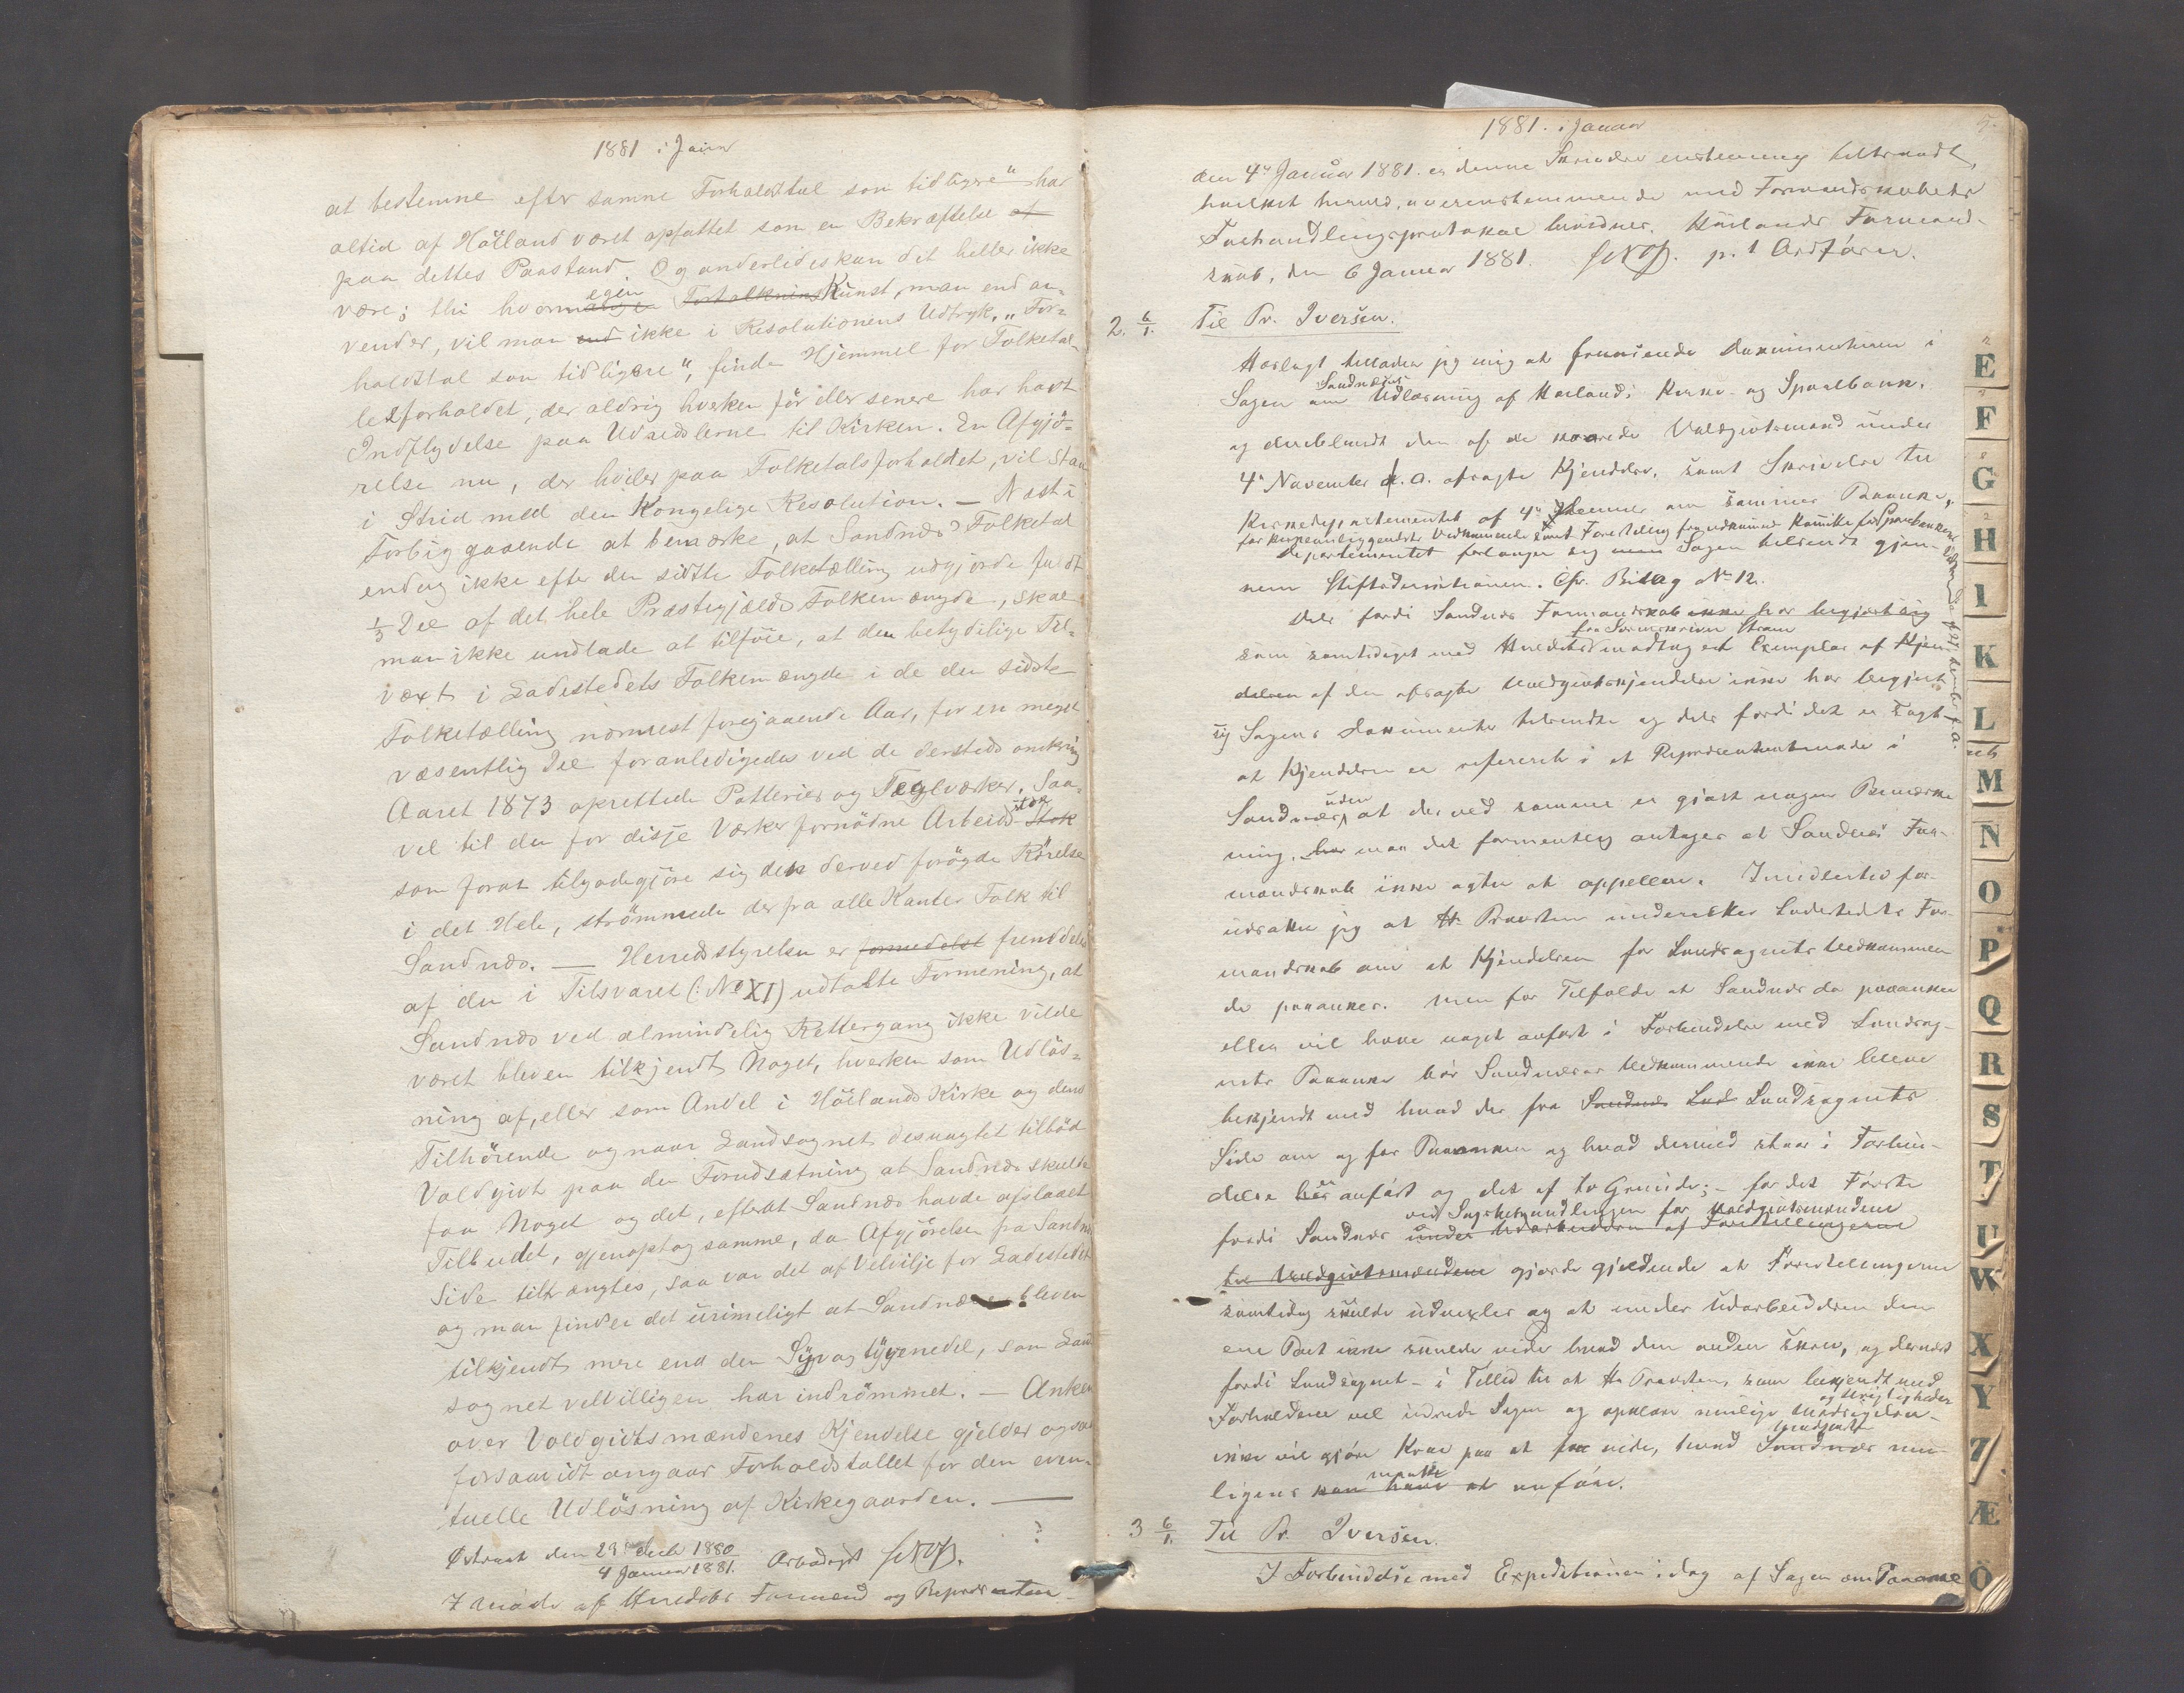 1881 i Januar
at bestemme efter samme Forholdstal som tidligere" har
altid af Höiland været opfattet som en Bekræftelse at
paa dettes Paastand. Og anderledes kan det heller ikke
være; thi hvor egen Kunst, man end an-
vender, vil man end ikke i Resolutionens Udtryk, "For-
holdstal som tidligere", finde Hjemmel for Folketal-
lesforholdet, der aldrig hverken för eller senere har havt
Indflydelse paa Udredslerne til Kirken. En Afgjö-
relse nu, der hviler paa Folketalsforholdet, vil staa
i Strid med den Kongelige Resolution. — Næst i
Forbiggaaende at bemærke, at Sandnæs' Folketal
endog ikke efter den sidste Folketælling udgjorde fuldt
1/3 Del af det hele Præstegjælds Folkemængde, skal
man ikke undlade at tilföie, at den betydelige Til-
vext i Ladestedets Folkemængde i de den sidste
Folketælling nærmest foregaaende Aar, for en meget
væsentlig Del foranledigedes ved de dersteds omkring
Aaret 1873 oprettede Potterier og Teglværker. Saa-
vel til den for disse Værker fornödne Arbeids-stok Stok
som forat tilgodegjöre sig den derved forögde Rörelse
i det Hele, strömmede der fra alle Kanter Folk til
Sandnæs. — Herredsstyrelsen er formedelst fremdeles
af den i Tilsvaret (: No XI) udtalte Formening, at
Sandnæs ved almindelig Rettergang ikke vilde
været bleven tilkjendt Noget, hverken som Udlös-
ning af, eller som Andel i Höilands Kirke og dens
Tilhörende og naar Landsognet desuagtet tilböd
Voldgivt paa den Forudsætning at Sandnæs skulde
faa Noget og det, efterat Sandnæs havde afslaaet
Tilbudet, gjenoptog samme, da Afgjörelse fra Sandnæs
Side tiltrængtes, saa var det af Velvilje for Ladestedet
og man finder det urimeligt at Sandnæs er bleven
tilkjendt mere end den Syv og tyvendedel, som Land
sognet velvilligen har indrömmet. — Anken
over Voldgivtsmændenes Kjendelse gjelder ogsaa
forsaavidt angaar Forholdstallet for den even-
tuelle Udlösning af Kirkegaarden. —
Østraat den 29 Decb 1880
4 Januar 1881.
I Möde af Herredets Formænd og Repræsentan-
1881. i Januar
5.
den 4de Januar 1881. er denne Skrivelse enstemmig tiltraadt,
hvilket herved, overensstemmende med Formandskabets
Forhandlingsprotokol bevidnes. Höilands Formand-
skab, den 6 Januar 1881. p. t Ordförer.
2. 6/1. Til Pr. Iversen.
Hoslagt tillader jeg mig at fremsende Documenterne i
Sagen om Sandnæses Udlösning af Höilands Kirke- og Sparebank.
og deriblandt den af de kaarede Voldgivtsmænd under
4de November d. A. afsagte Kjendelse, samt Skrivelse til
Kirkedepartementet af 4de Januar om sammes Paaanke,
departementet forlanger sig Sagen tilsendt gjen-
nem Stiftsdirectionen. Cfr. Bilag No 12.
Dels fordi Sandnæs Formandskab ikke har begjært sig
som samtidigt med Herredet modtog et Exemplar af Kjen-
delsen af den afsagte Voldgivtskjendelse ikke har begjært
sig Sagens Documenter tilsendte og dels fordi det er sagt
at Kjendelsen er refereret i et Repræsentantmöde i
Sandnæs, uden at der ved samme er gjort nogen Bemærk-
ning, har man det formentlig antages at Sandnæs For-
mandskab ikke agter at appellere. Imidlertid for-
udsætter jeg at Hr. Provsten underretter Ladestedets For-
mandskab om at Kjendelsen for Landsognets Vedkommen
de paaankes. Men for Tilfælde at Sandnæs da paaanker
eller vil have noget anfört i Forbindelse med Landsog-
nets Paaanke bör Sandnæses Vedkommende ikke blive
bekjendt med hvad der fra Sandnæs Lad Landsognets
Side om og for Paaanken og hvad dermed staar i Forbin-
delse er anfört og det af to Grunde; — for det Förste
fordi Sandnæs ved Sagsbehandlingen for Voldgivtsmændene under Udarbeidelsen af Forestillingerne
til Voldgivtsmændene gjorde gjeldende at Forestillingerne
samtidig skulde udvexles og at under Udarbeidelsen den
ene Part ikke skulde vide hvad den anden skrev, og dernæst
fordi Landsognet — i Tillid til at Hr. Provsten, som bekjendt med
Forholdene vil udrede Sagen og opklare mulige Uklarheder
ikke vil gjöre Krav paa at faa vide, hvad Sandnæs mu-
ligens kan have at anföre.
3 6/1. Til Pr. Iversen.
I Forbindelse med Expeditionen i dag af Sagen om Paaanke
E
F
G
H
I
K
L
M
N
O
P
Q
R
S
T
U
W
X
Y
Z
Æ
Ö